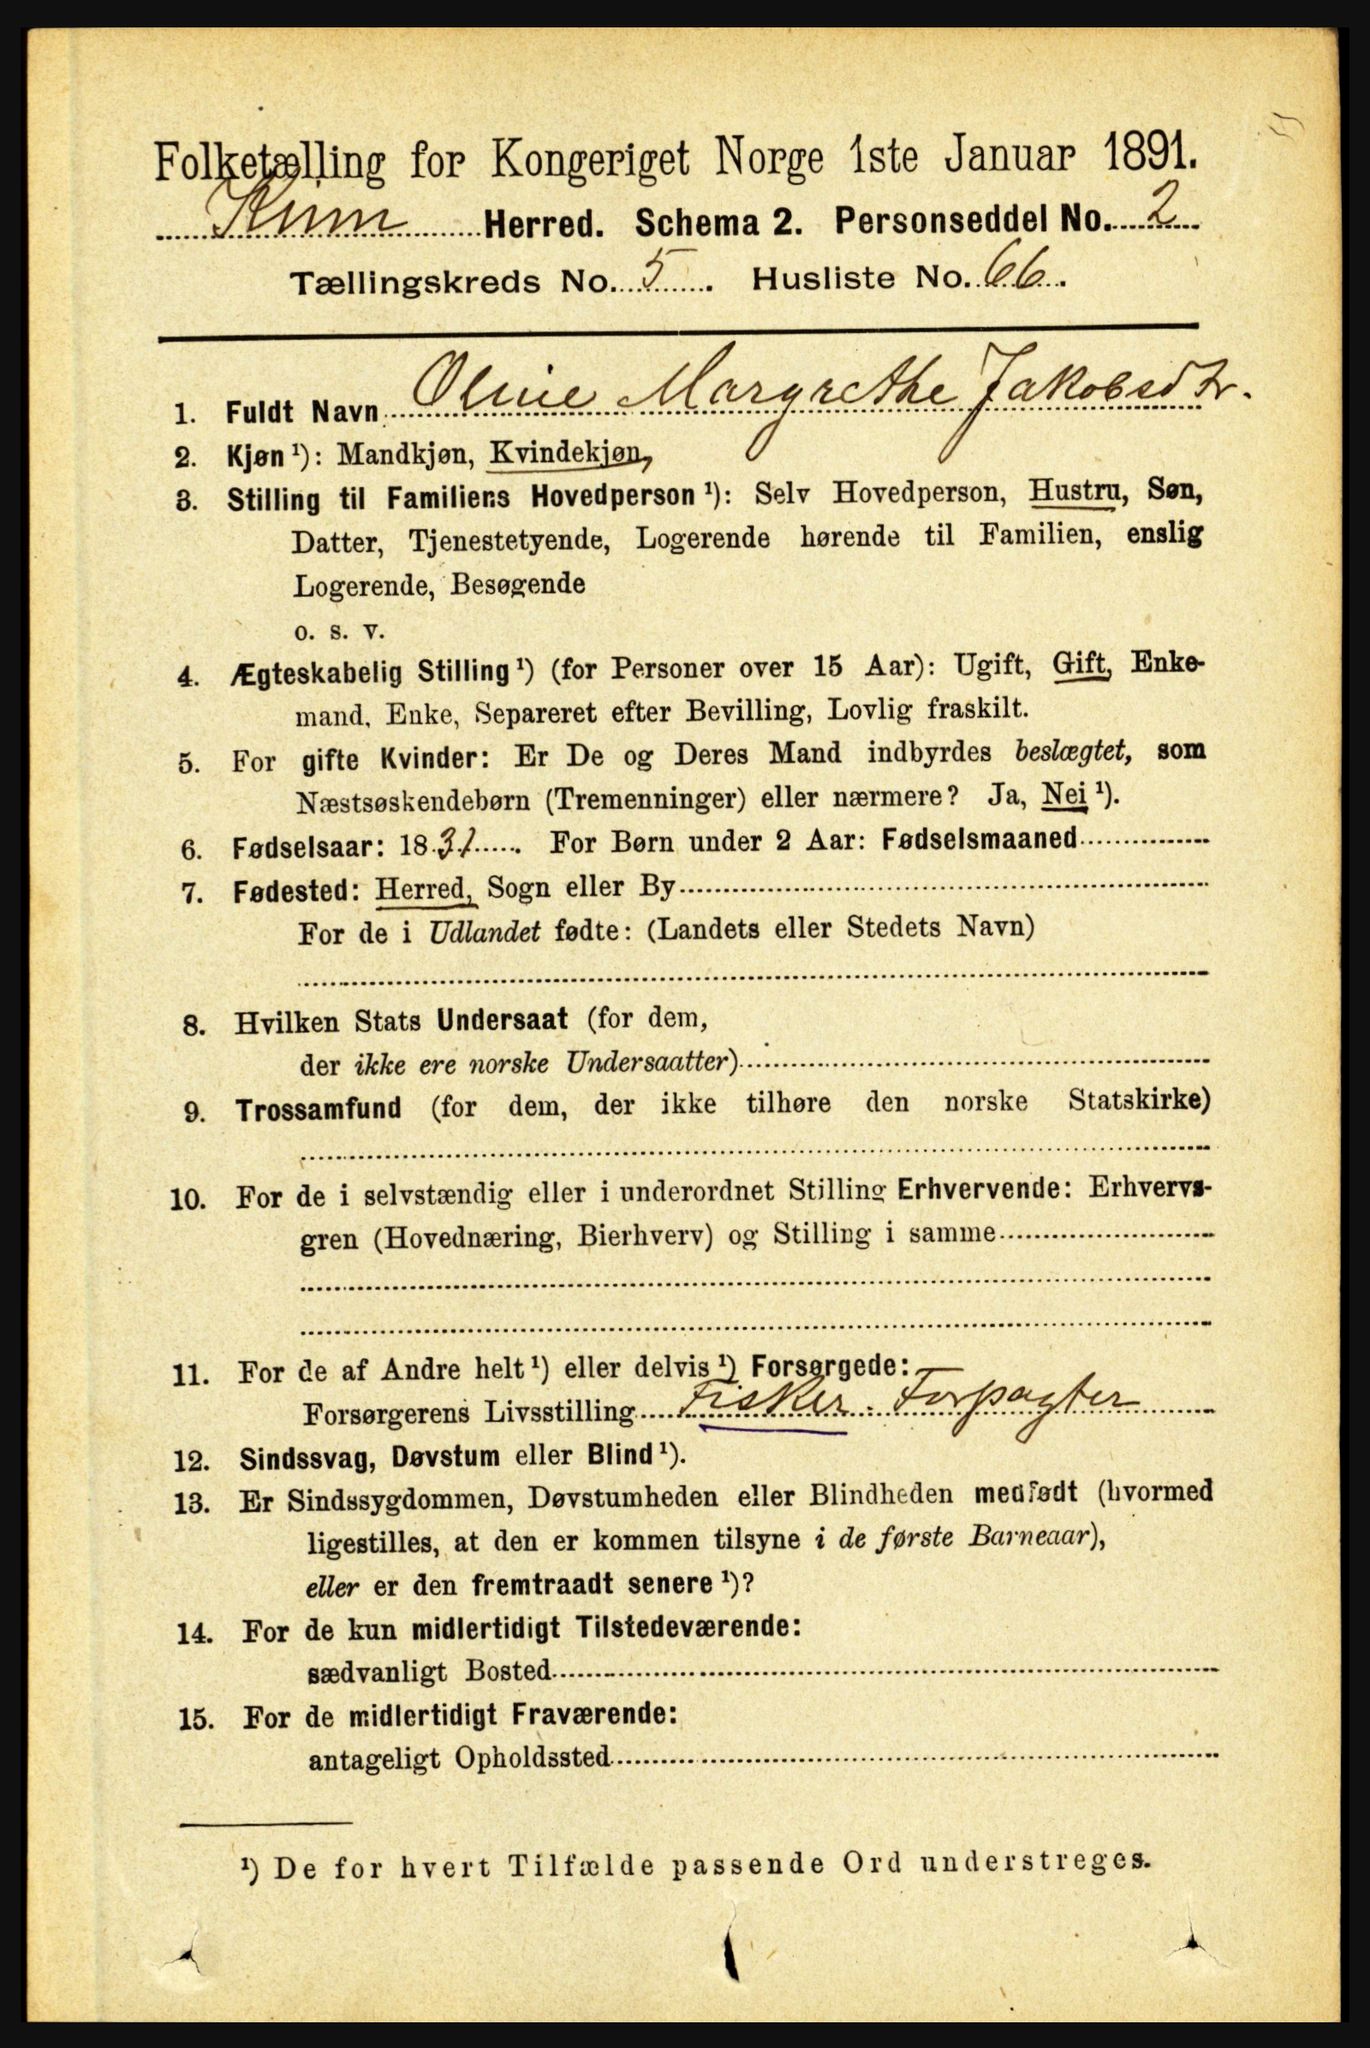 Folketælling for Kongeriget Norge 1ste Januar 1891.
Kinn Herred. Schema 2. Personseddel No. 2
Tællingskreds No. 5. Husliste No. 66.
1. Fuldt Navn Oline Margrethe Jakobsdtr.
2. Kjøn ¹): Mandkjøn, Kvindekjøn,
3. Stilling til Familiens Hovedperson ¹): Selv Hovedperson, Hustru, Søn,
Datter, Tjenestetyende, Logerende hørende til Familien, enslig
Logerende, Besøgende
o. s. v.
4. Ægteskabelig Stilling ¹) (for Personer over 15 Aar): Ugift, Gift, Enke-
mand, Enke, Separeret efter Bevilling, Lovlig fraskilt.
5. For gifte Kvinder: Er De og Deres Mand indbyrdes beslægtet, som
Næstsøskendebørn (Tremenninger) eller nærmere? Ja, Nei ¹).
6. Fødselsaar: 1831. For Børn under 2 Aar: Fødselsmaaned
7. Fødested: Herred, Sogn eller By
For de i Udlandet fødte: (Landets eller Stedets Navn)
8. Hvilken Stats Undersaat (for dem,
der ikke ere norske Undersaatter)
9. Trossamfund (for dem, der ikke tilhøre den norske Statskirke)
10. For de i selvstændig eller i underordnet Stilling Erhvervende: Erhvervs-
gren (Hovednæring, Bierhverv) og Stilling i samme
11. For de af Andre helt ¹) eller delvis ¹) Forsørgede:
Forsørgerens Livsstilling Fisker. Forpagter
12. Sindssvag, Døvstum eller Blind ¹).
13. Er Sindssygdommen, Døvstumheden eller Blindheden medfødt (hvormed
ligestilles, at den er kommen tilsyne i de første Barneaar),
eller er den fremtraadt senere ¹)?
14. For de kun midlertidigt Tilstedeværende:
sædvanligt Bosted
15. For de midlertidigt Fraværende:
antageligt Opholdssted
¹) De for hvert Tilfælde passende Ord understreges.